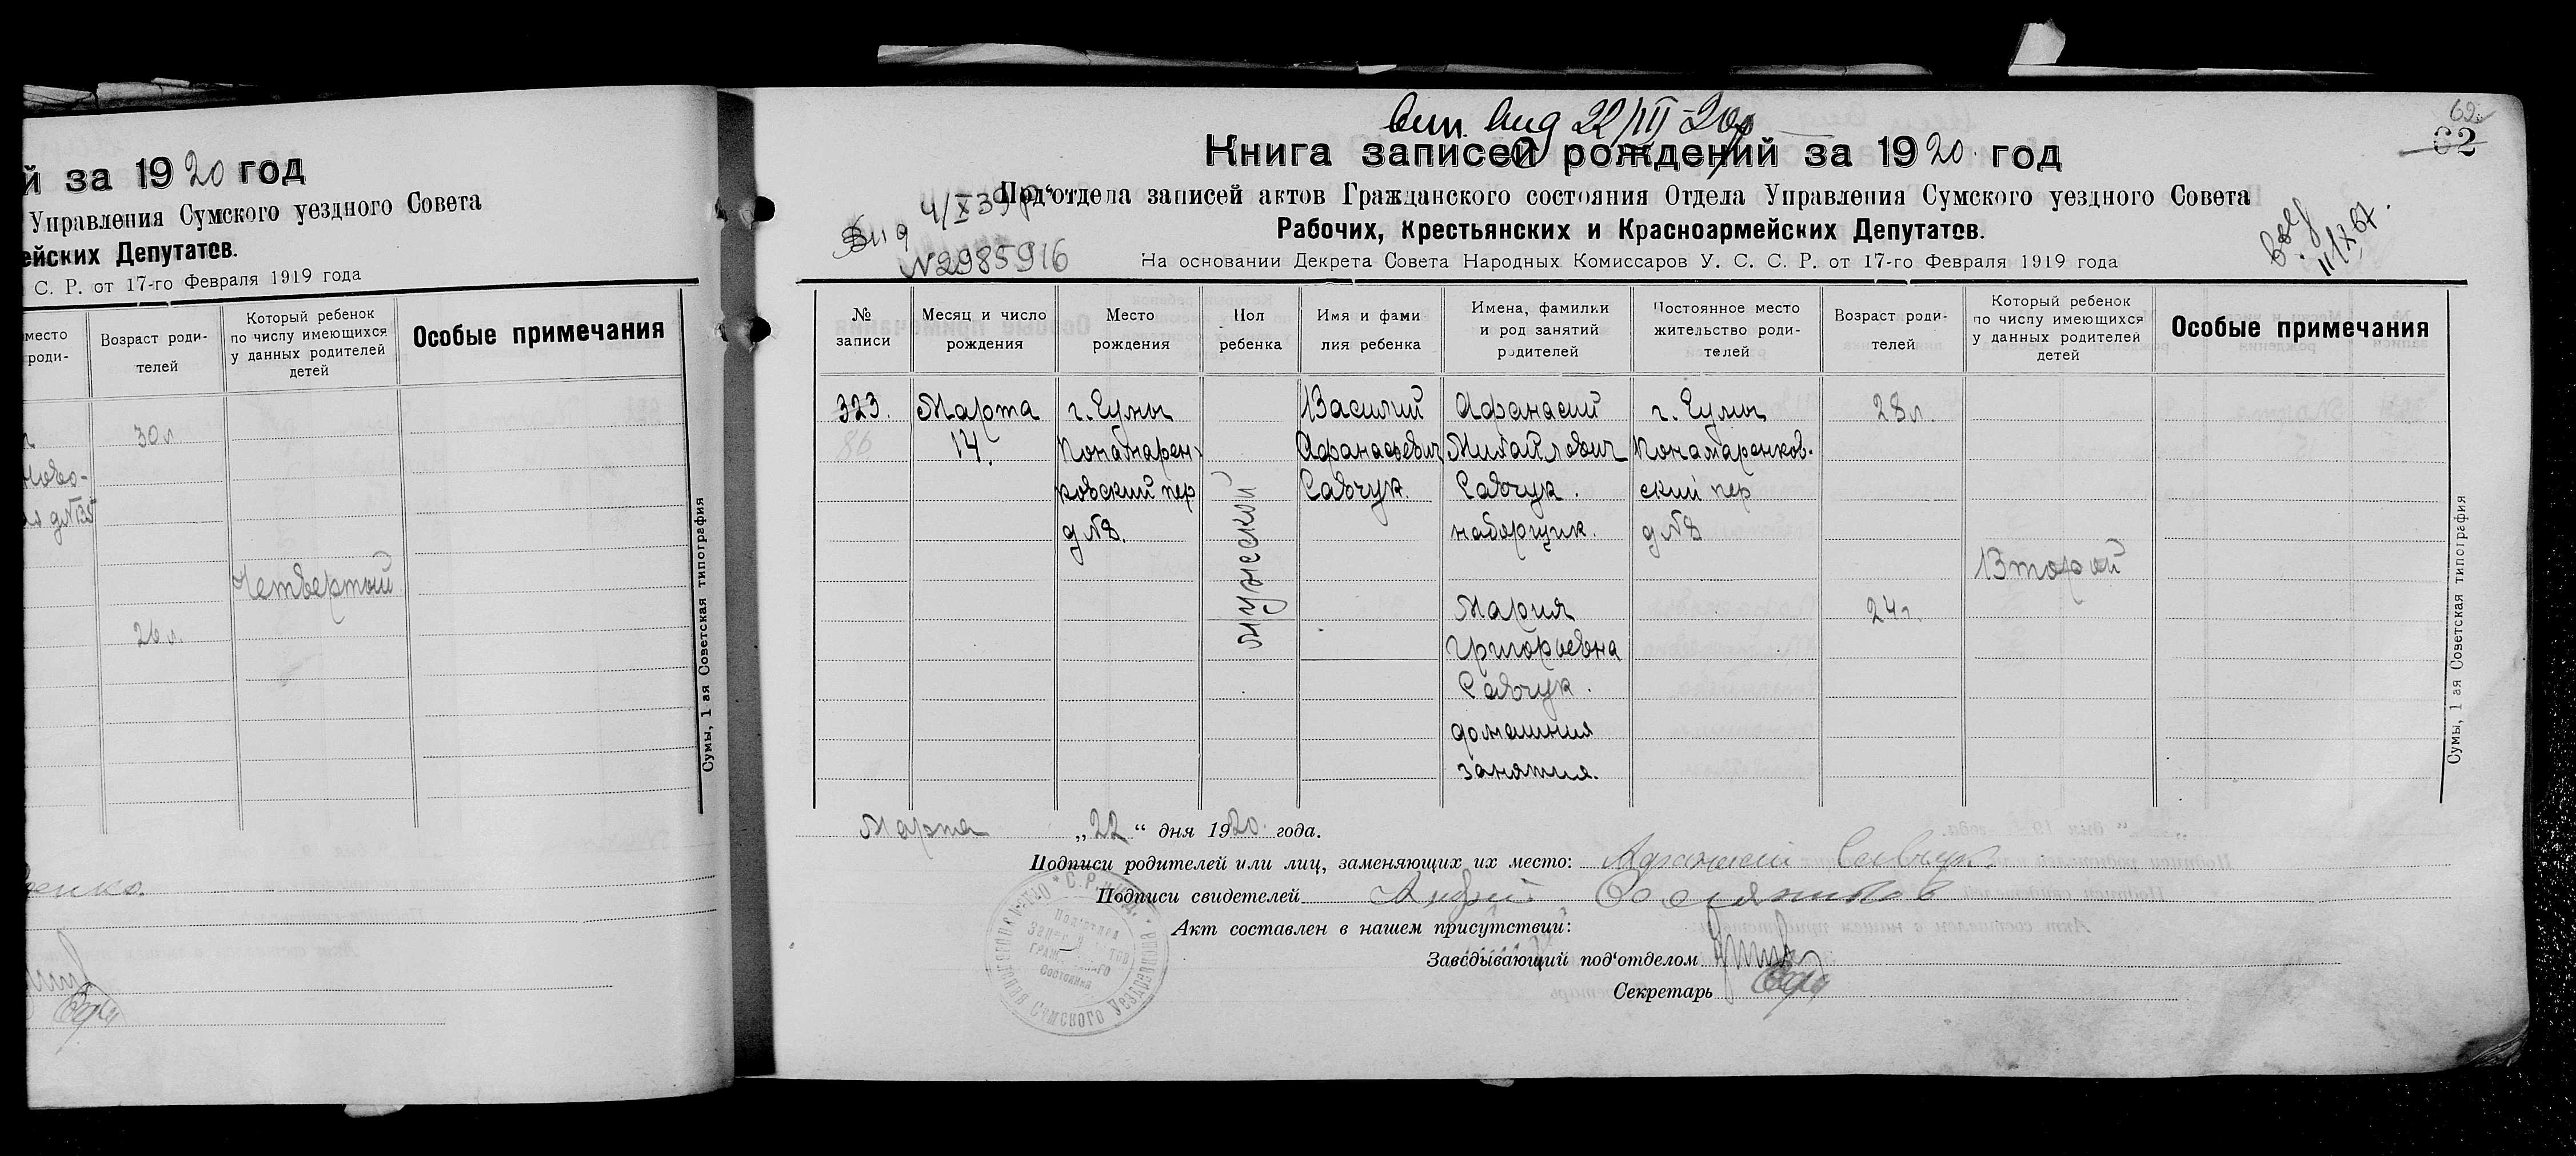 й за 1920 год
Управления Сумского уездного Совета
ейских Депутатов.
С. Р. от 17-го Февраля 1919 года
место
роди-
Возраст роди-
телей
Который ребенок
по числу имеющихся
у данных родителей
детей
Особые примечания
30 л
Ново-
д№35
Четвертый
26 л.
Сумы, 1 ая Советская типография
енко.
вып. вид 22/III-20г
62
62
Книга записей рождений за 1920 год
Под'отдела записей актов Гражданского состояния Отдела Управления Сумского уездного Совета
Рабочих, Крестьянских и Красноармейских Депутатов.
На основании Декрета Совета Народных Комиссаров У. С. С. Р. от 17-го Февраля 1919 года
4/X 39
№2985916
11/X 67.
№
записи
Месяц и число
рождения
Место
рождения
Пол
ребенка
Имя и фами
лия ребенка
Имена, фамилии
и род занятий
родителей
Постоянное место
жительство роди-
телей
Возраст роди-
телей
Который ребенок
по числу имеющихся
у данных родителей
детей
Особые примечания
323.
86
Марта
14.
г. Сумы
Понамарен
ковский пер
д №8.
мужеской
Василий
Афанасьевич
Савчук.
Афанасий
Михайлович
Савчук.
наборщик.
Мария
Григорьевна
Савчук.
домашния
занятия.
г. Сумы
Понамаренков-
ский пер
д №8
28 л.
24 г.
Второй
Сумы, 1 ая Советская типография
Марта „22“ дня 1920 года.
Подписи родителей или лиц, заменяющих их место: Афанасий Савчук
Подписи свидетелей Андрей
Акт составлен в нашем присутствии:
Заведывающий под'отделом
Секретарь
Под'отдел
Записи Актов
Гражданского
Состояния
Сумского Уездревкома